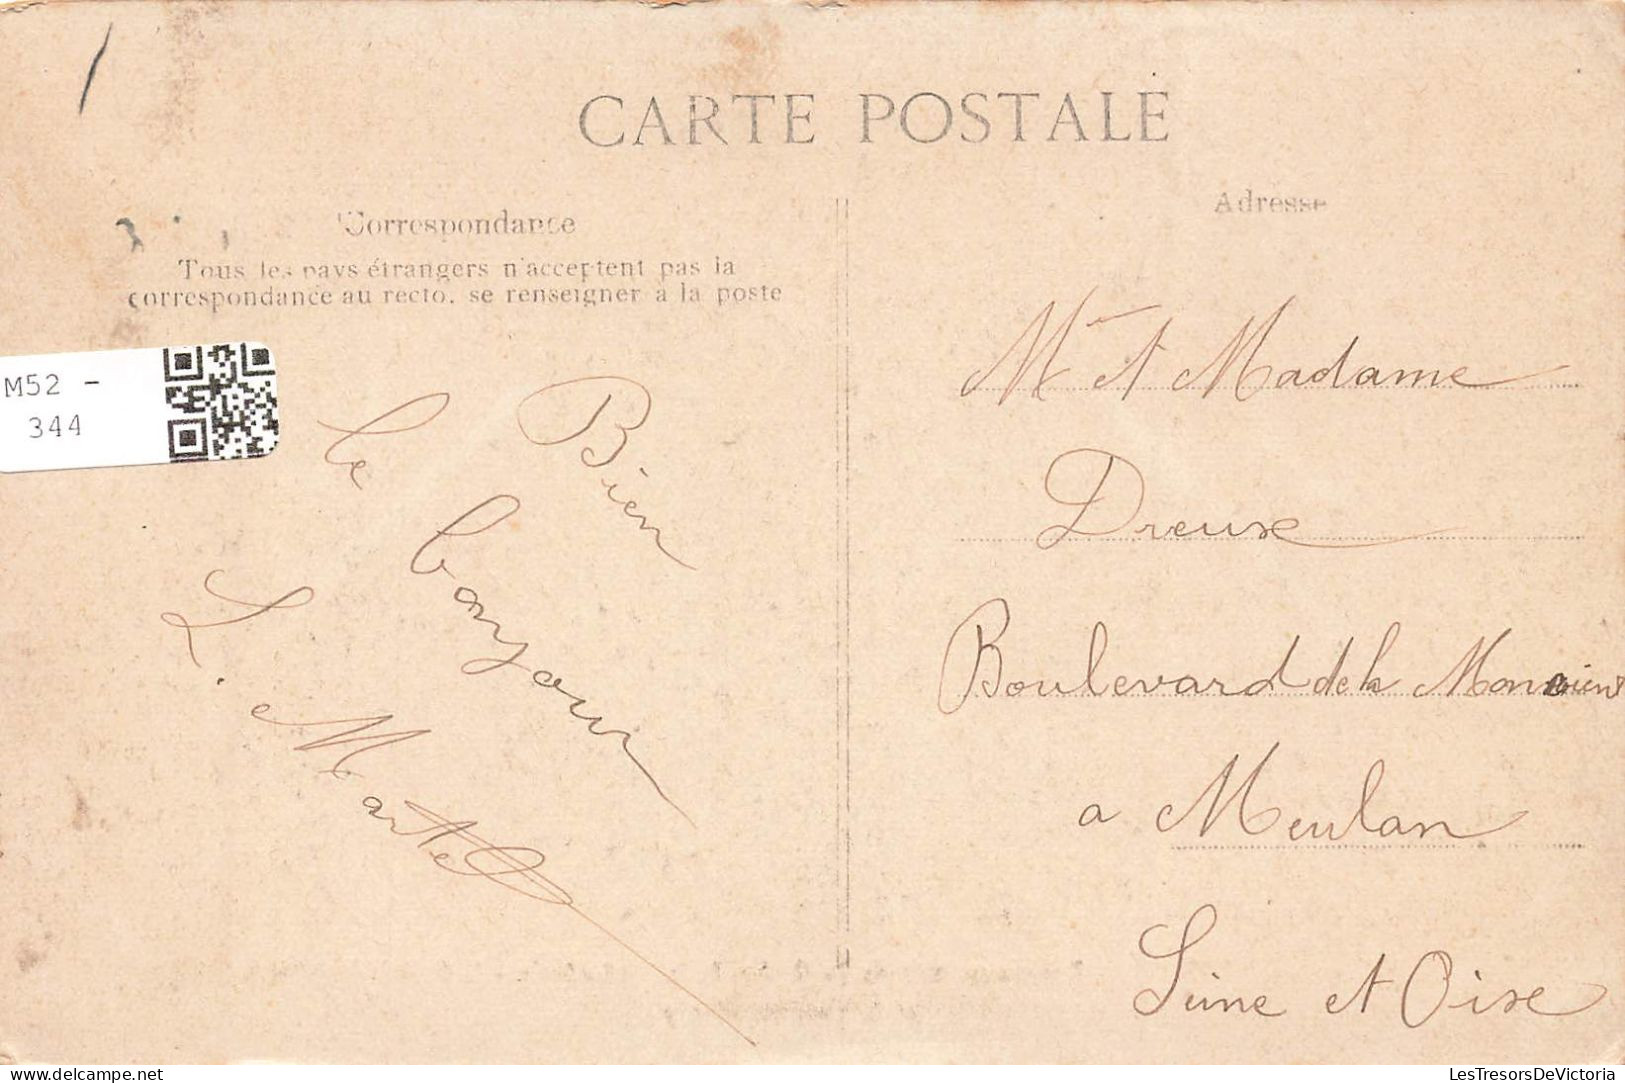 CARTE POSTALE
Correspondance
Tous les pays étrangers n'acceptent pas la
correspondance au recto. se renseigner à la poste
M52 -
344
Bien
le bonjour
L. Martel
Adresse
Mr et Madame
Dreux
Boulevard de la
a Meulan
Seine et Oise
LesTresorsDeVictoria